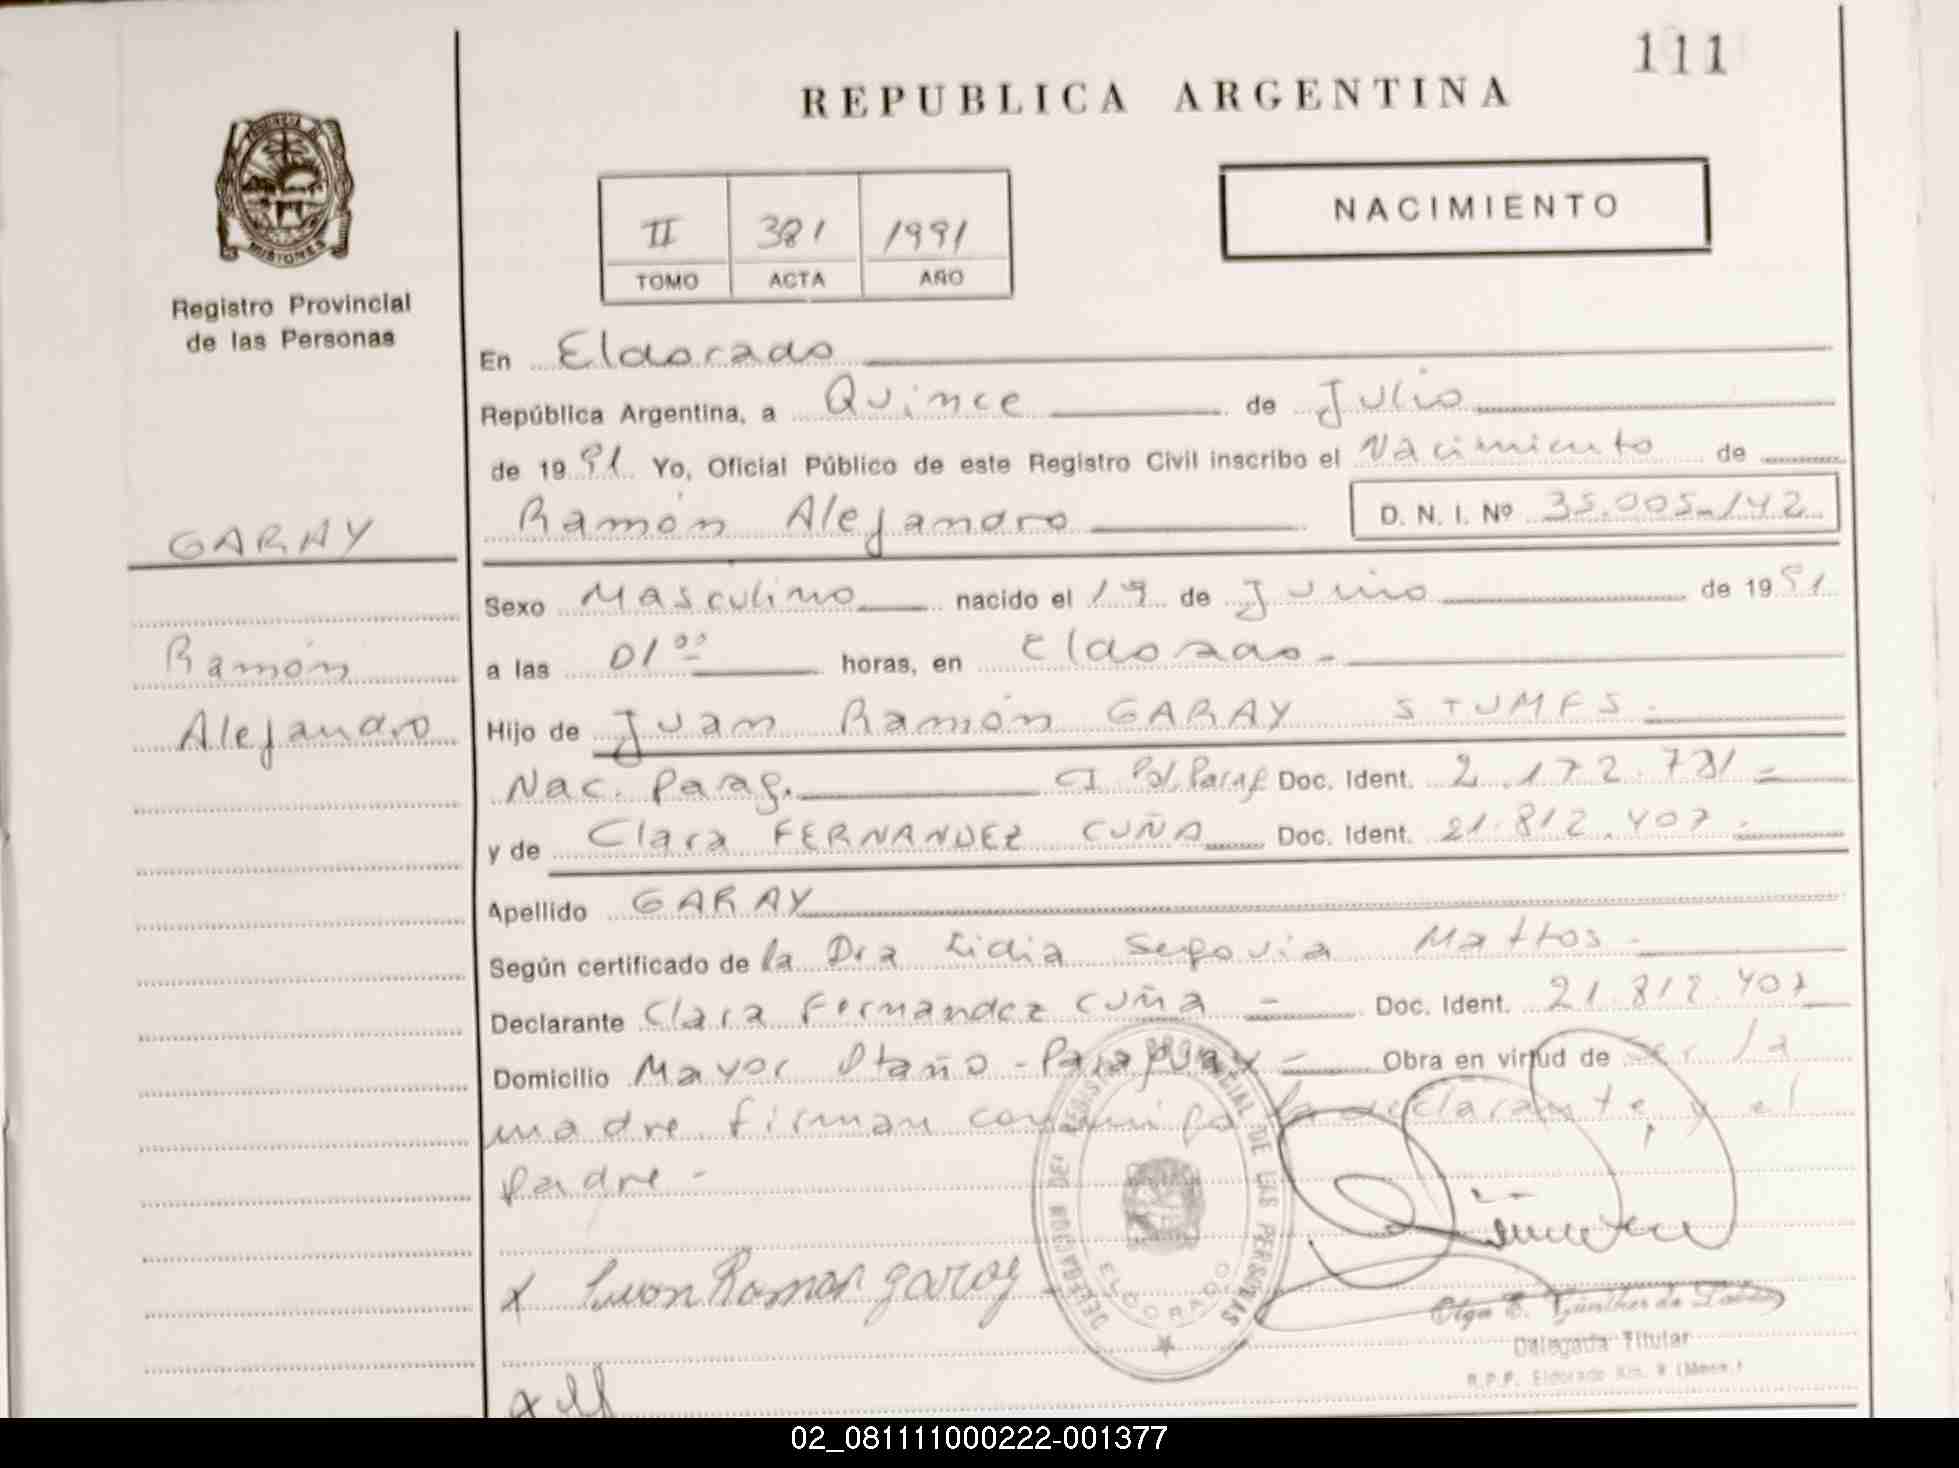 111
REPUBLICA ARGENTINA
NACIMIENTO
II 381 1991
TOMO ACTA AÑO
PROVINCIA DE
MISIONES
Registro Provincial
de las Personas
GARAY
Ramón
Alejandro
En Eldorado
República Argentina, a Quince de Julio
de 1991 Yo, Oficial Público de este Registro Civil inscribo el Nacimiento de
Ramón Alejandro D. N. I. Nº 35.005.142
Sexo Masculino nacido el 19 de Junio de 1991
a las 01 00 horas, en Eldorado.
Hijo de Juan Ramón GARAY
Nac. Parag. CI Pol. Parag Doc. Ident. 2.172.781
y de Clara FERNANDEZ CUÑA Doc. Ident. 21.812.407
Apellido GARAY
Según certificado de la Dra Lidia Segovia Mattos
Declarante Clara Fernandez Cuña Doc. Ident. 21.812.407
Domicilio Mayor Otaño - Paraguay Obra en virtud de ser la
madre firman conmigo la declarante y el
padre -
x Juan Ramon garay
DELEGACION DEL REGISTRO PROVINCIAL DE LAS PERSONAS
ELDORADO
Olga E. Günther de
Delegada Titular
R.P.P. Eldorado Km. 9 (Mnes.)
02_081111000222-001377